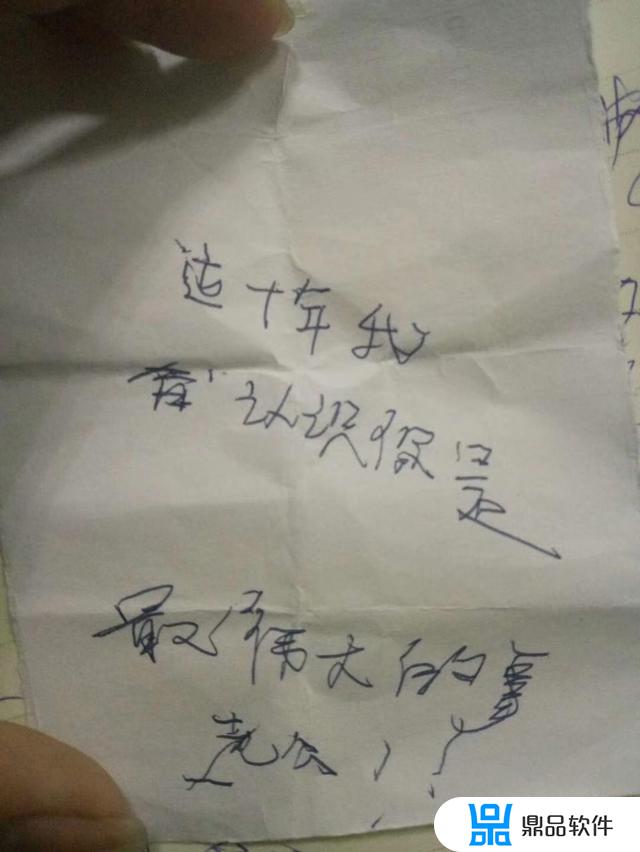 这十年我
认识你是
最伟大的
老公,!
鼎品软件